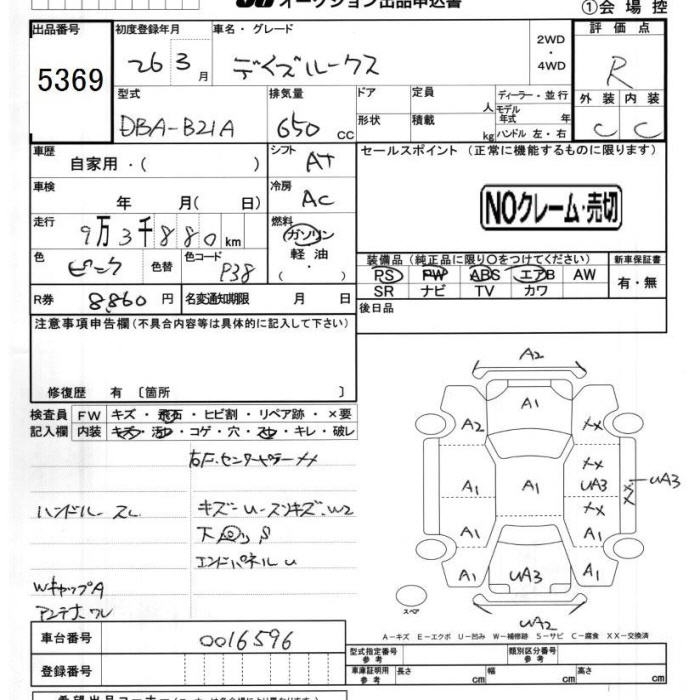 オークション出品申込書
①会場控
出品番号
5369
初度登録年月
26 3月
車名・グレード
デイズルークス
2WD
・
4WD
評価点
R
外装 内装
C C
型式
DBA-B21A
排気量
650 cc
ドア
定員 人
形状
積載 kg
ディーラー・並行
モデル年式 年
ハンドル 左・右
車歴
自家用・( )
シフト
AT
車検
年 月( 日)
冷房
AC
走行
9万3千880km
燃料
ガソリン
軽油
( ・ )
色
ピンク
色替
色コード
P38
R券
8,860円
名変通知期限 月 日
セールスポイント (正常に機能するものに限ります)
NOクレーム・売切
装備品(純正品に限り○をつけてください)
PS PW ABS エアB AW
SR ナビ TV カワ
新車保証書
有・無
後日品
注意事項申告欄(不具合内容等は具体的に記入して下さい)
修復歴 有 〔箇所 〕
検査員記入欄
FW キズ・飛石・ヒビ割・リペア跡・×要
内装 キズ・汚・コゲ・穴・スレ・キレ・破レ
右F.センターピラーXX
ハンドルースレ
キズーU-スリキズ.W2
エンドパネルU
WキャップA
アンテナ
A2
A1
A2
XX
XX
UA3
XX
UA3
A1
A1
A1
A1
A1
UA3
A1
UA2
スペア
A-キズ E-エクボ U-凹み W-補修跡 S-サビ C-腐食 XX-交換済
車台番号
0016596
登録番号
型式指定番号 参考
類別区分番号 参考
車庫証明用 参考
長さ cm
幅 cm
高さ cm